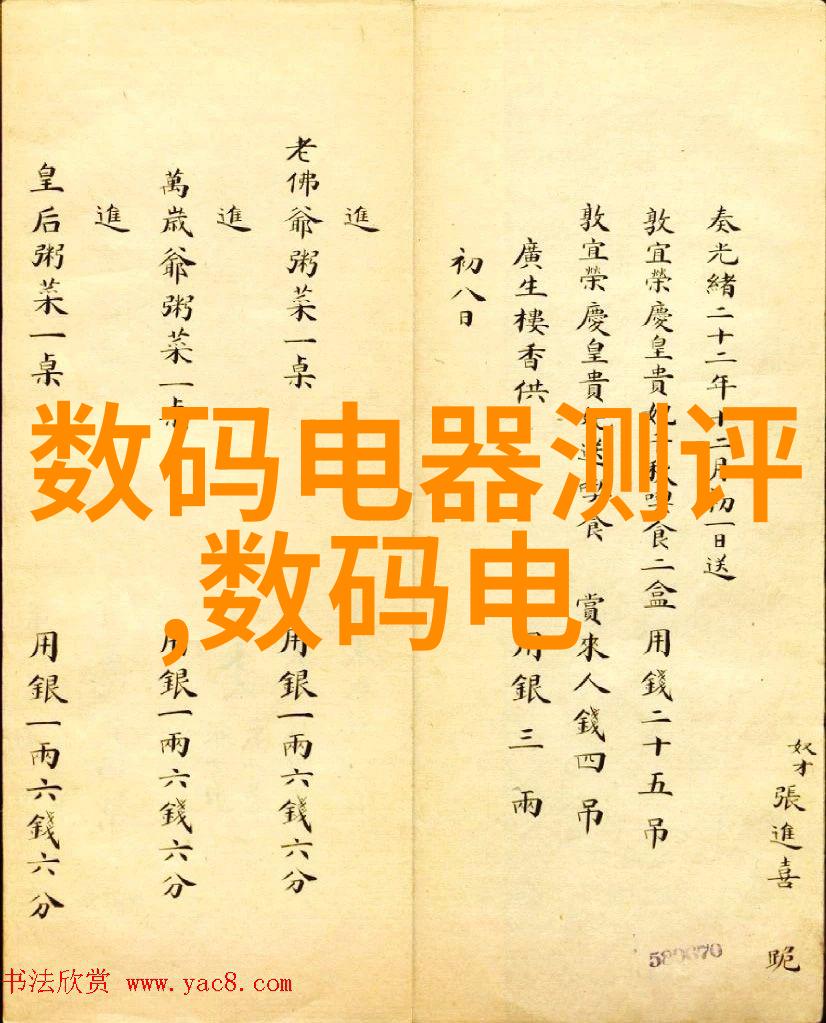 奴才張進喜 跪
奏光緒二十二年十二月初一日送
敦宜榮慶皇貴妃 食二盒用錢二十五吊
敦宜榮慶皇貴 送 食 賞來人錢四吊
廣生樓香供 用銀三兩
初八日
進
老佛爺粥菜一桌 用銀一兩六錢六分
進
萬歲爺粥菜一桌 用銀一兩六錢六分
進
皇后粥菜一桌 用銀一兩六錢六分
数码电器测评
,数码电
580670
书法欣赏 www.yac8.com